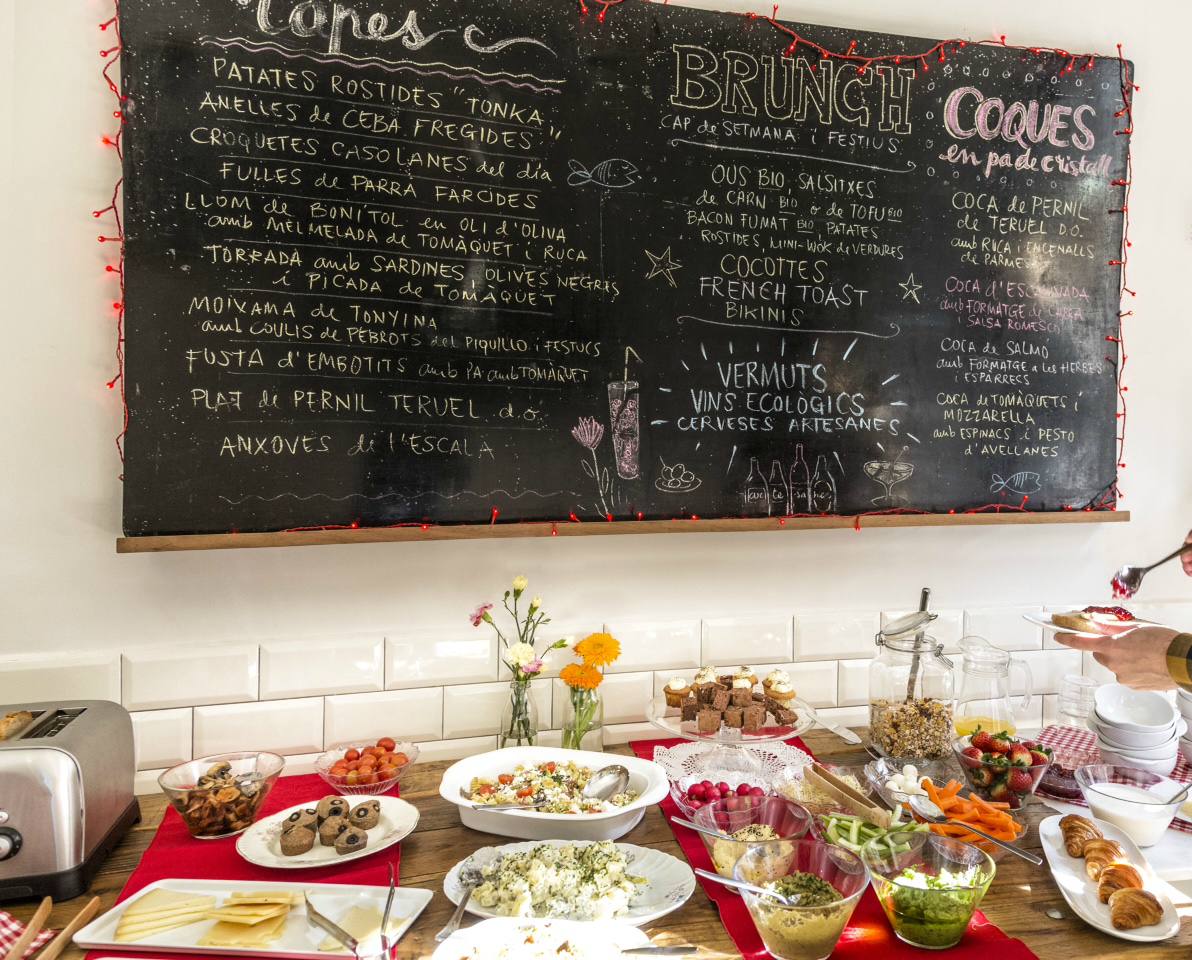 Tapes
PATATES ROSTIDES "TONKA"
ANELLES de CEBA FREGIDES
CROQUETES CASOLANES del día
FULLES de PARRA FARCIDES
LLOM de BONÍTOL en OLI d'OLIVA
amb MELMELADA de TOMÀQUET i RUCA
TORRADA amb SARDINES, OLIVES NEGRES
i PICADA de TOMÀQUET
MOIXAMA de TONYINA
amb COULIS de PEBROTS del PIQUILLO i FESTUCS
FUSTA d'EMBOTITS amb PA amb TOMÀQUET
PLAT de PERNIL TERUEL d.o.
ANXOVES de l'ESCALA
BRUNCH
CAP de SETMANA i FESTIUS
OUS BIO, SALSITXES
de CARN BIO o de TOFU BIO
BACON FUMAT BIO, PATATES
ROSTIDES, MINI-WOK de VERDURES
COCOTTES
FRENCH TOAST
BIKINIS
VERMUTS
VINS ECOLÒGICS
CERVESES ARTESANES
COQUES
en pa de cristall
COCA de PERNIL
de TERUEL D.O.
amb RUCA i ENCENALLS
de PARMESÀ
COCA d'ESCALIVADA
amb FORMATGE de CABRA
i SALSA ROMESCO
COCA de SALMÓ
amb FORMATGE a les HERBES
i ESPÀRRECS
COCA de TOMÀQUETS i
MOZZARELLA
amb ESPINACS i PESTO
d'AVELLANES